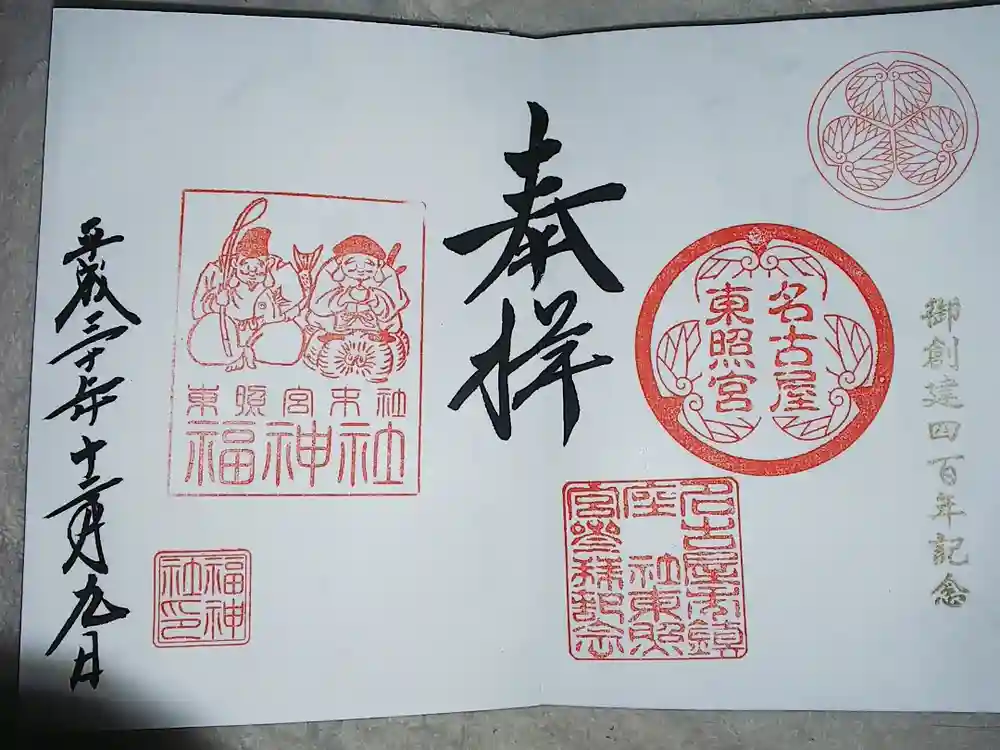 御創建四百年記念
名古屋
東照宮
名古屋市鎮
座 社東照
宮參拜記念
奉拝
東照宮末社
福神社
福神
社印
平成三十年十二月九日